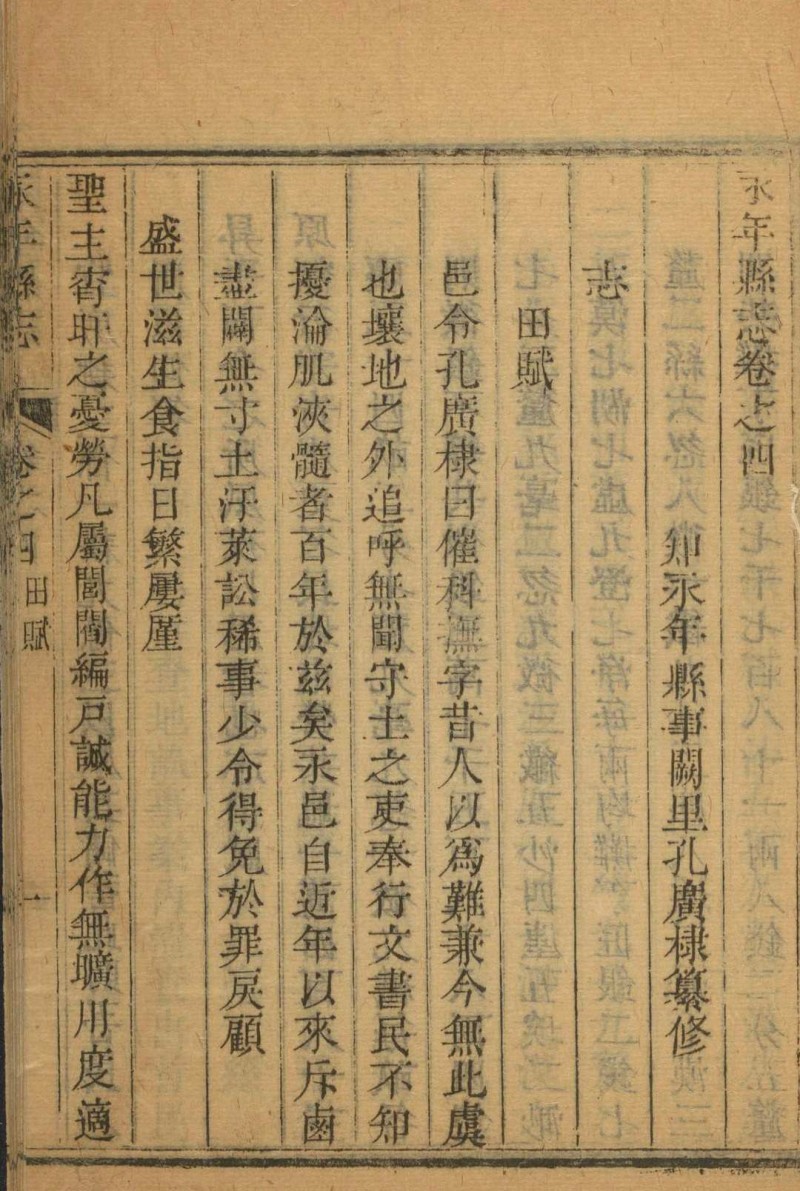 永年縣志卷之四
知永年縣事闕里孔廣棣纂修
志
田賦
邑令孔廣棣曰催科撫字昔人以為難兼今無此虞
也壤地之外追呼無聞守土之吏奉行文書民不知
擾淪肌浹髓者百年於兹矣永邑自近年以來斥鹵
盡闢無寸土汙萊訟稀事少令得免於罪戾顧
盛世滋生食指日繁屢厪
聖主宵旰之憂勞凡屬閭閻編戸誠能力作無壙用度適
永年縣志 卷之四 田賦 一